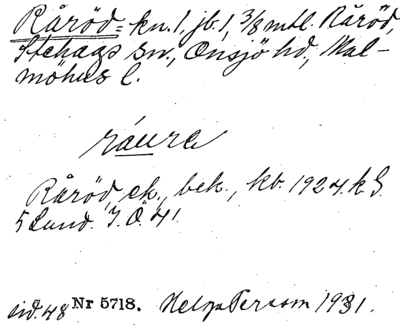 Råröd = kn. 1, jb. 1, 3/8 mtl. Råröd,
Stehags sn., Onsjö hd., Mal-
möhus l.
råura
Råröd, ek., beb., kv. 1924. k G.
5 Lund. J. Ö. 41.
sid. 48 Nr 5718. Helga Persson 1931.